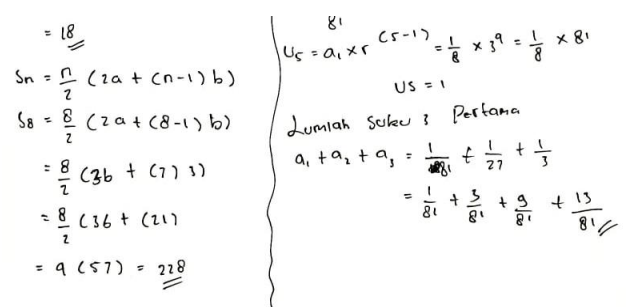 = 18
Sn = n/2 (2a + (n-1) b)
S8 = 8/2 (2a + (8-1) b)
= 8/2 (36 + (7) 3)
= 8/2 (36 + (21)
= 4 (57) = 228
81
U5 = a₁ x r (5-1) = 1/8 x 3⁴ = 1/8 x 81
U5 = 1
Jumlah Suku 3 Pertama
a₁ + a₂ + a₃ = 1/81 + 1/27 + 1/3
= 1/81 + 3/81 + 9/81 + 13/81